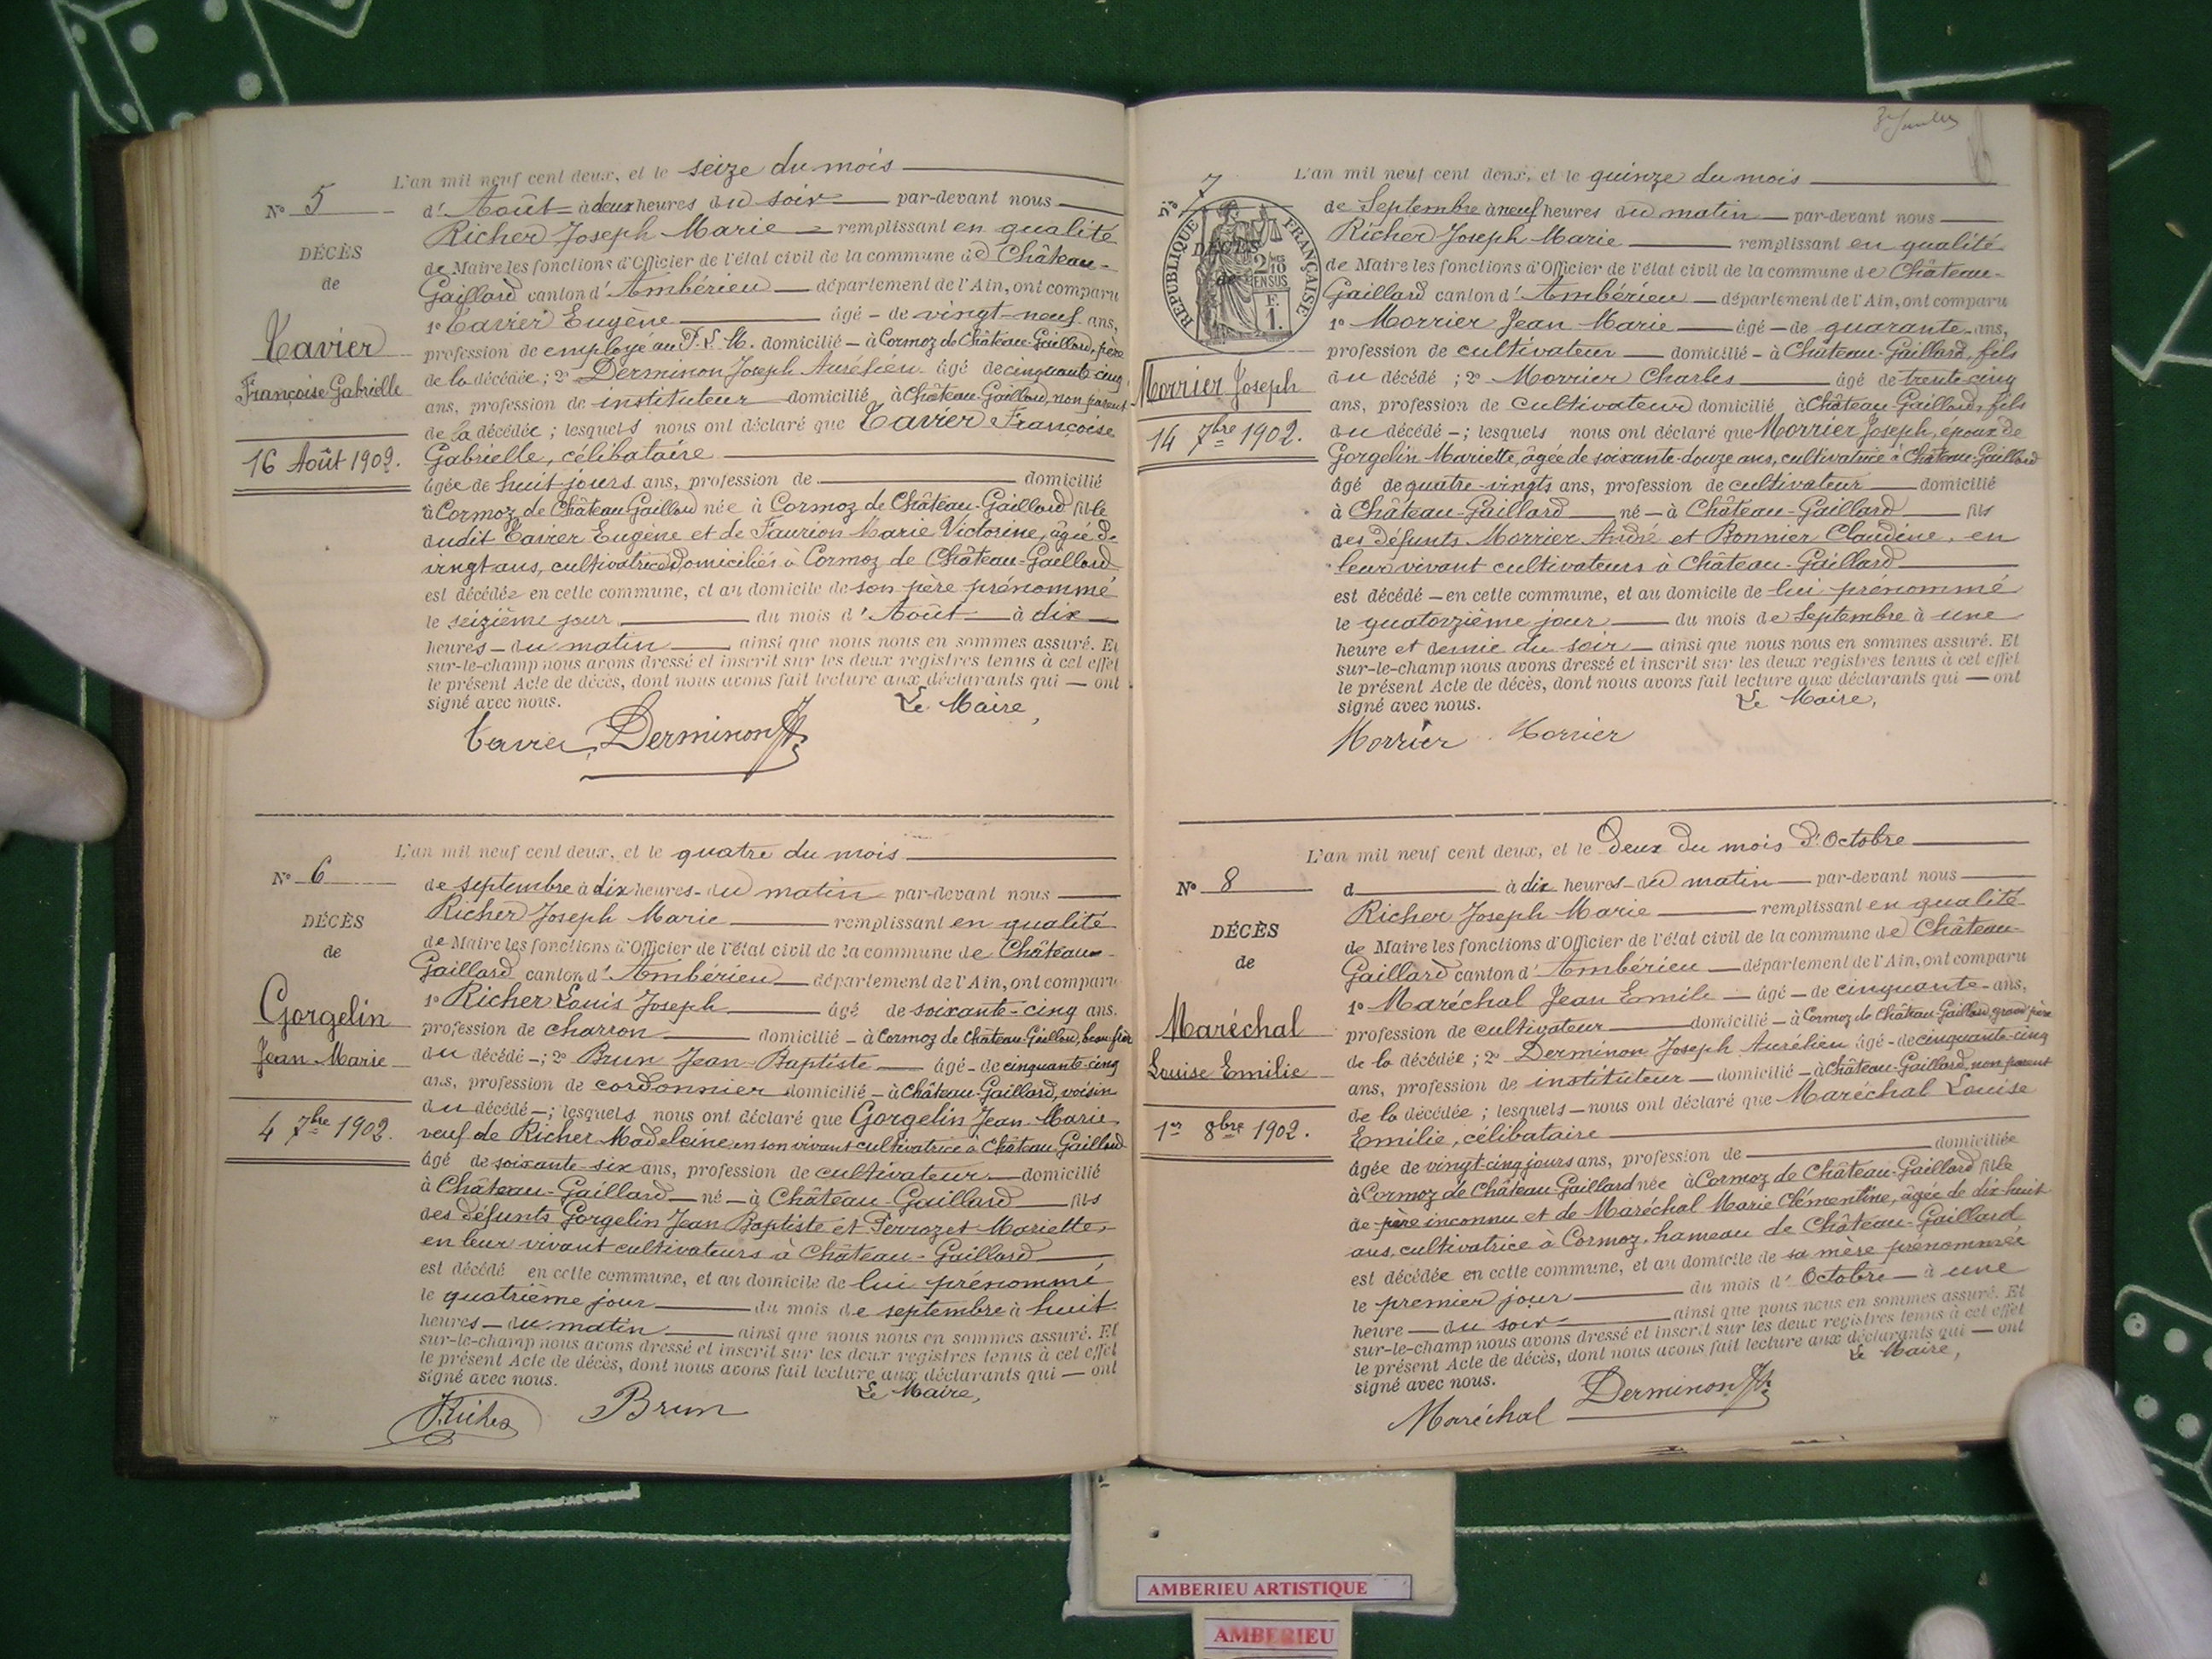 L'an mil neuf cent deux, et le seize du mois
N° 5
d'Août à deux heures du soir par-devant nous
Richer Joseph Marie remplissant en qualité
DÉCÈS
de
de Maire les fonctions d'Officier de l'état civil de la commune de Château-
Gaillard canton d'Ambérieu département de l'Ain, ont comparu
1° Tavier Eugène âgé de vingt-neuf ans,
Tavier
Françoise Gabrielle
16 Août 1902.
profession de employé au P. L. M. domicilié à Cormoz de Château-Gaillard, père
de la décédée ; 2° Derminon Joseph Aurélien âgé de cinquante-cinq
ans, profession de instituteur domicilié à Château-Gaillard, non parent
de la décédée ; lesquels nous ont déclaré que Tavier Françoise
Gabrielle, célibataire
âgée de huit jours ans, profession de domicilié
à Cormoz de Château Gaillard née à Cormoz de Château-Gaillard fille
dudit Tavier Eugène et de Faurion Marie Victorine, âgée de
vingt ans, cultivatrice domiciliés à Cormoz de Château-Gaillard
est décédée en cette commune, et au domicile de son père prénommé
le seizième jour du mois d'Août à dix
heures du matin ainsi que nous nous en sommes assuré. Et
sur-le-champ nous avons dressé et inscrit sur les deux registres tenus à cet effet
le présent Acte de décès, dont nous avons fait lecture aux déclarants qui ont
signé avec nous. Le Maire,
Tavier Derminon
L'an mil neuf cent deux, et le quatre du mois
N° 6
de septembre à dix heures du matin par-devant nous
Richer Joseph Marie remplissant en qualité
DÉCÈS
de
de Maire les fonctions d'Officier de l'état civil de la commune de Château-
Gaillard canton d'Ambérieu département de l'Ain, ont comparu
1° Richer Louis Joseph âgé de soixante-cinq ans.
Gorgelin
Jean Marie
4 7bre 1902.
profession de charron domicilié à Cormoz de Château-Gaillard, beau frère
du décédé ; 2° Brun Jean-Baptiste âgé de cinquante-cinq
ans, profession de cordonnier domicilié à Château-Gaillard, voisin
du décédé ; lesquels nous ont déclaré que Gorgelin Jean-Marie
veuf de Richer Madeleine en son vivant cultivatrice à Château-Gaillard
âgé de soixante-six ans, profession de cultivateur domicilié
à Château-Gaillard né à Château-Gaillard fils
des défunts Gorgelin Jean Baptiste et Ferrozet Mariette,
en leur vivant cultivateurs à Château-Gaillard
est décédé en cette commune, et au domicile de lui prénommé
le quatrième jour du mois de septembre à huit
heures du matin ainsi que nous nous en sommes assuré. Et
sur-le-champ nous avons dressé et inscrit sur les deux registres tenus à cet effet
le présent Acte de décès, dont nous avons fait lecture aux déclarants qui ont
signé avec nous. Le Maire,
Richer Brun
L'an mil neuf cent deux, et le quinze du mois
N° 7
de Septembre à neuf heures du matin par-devant nous
Richer Joseph Marie remplissant en qualité
DÉCÈS
de
RÉPUBLIQUE FRANÇAISE
2/10 EN SUS
F. 1.
de Maire les fonctions d'Officier de l'état civil de la commune de Château-
Gaillard canton d'Ambérieu département de l'Ain, ont comparu
1° Morrier Jean Marie âgé de quarante ans,
Morrier Joseph
14 7bre 1902.
profession de cultivateur domicilié à Château-Gaillard, fils
du décédé ; 2° Morrier Charles âgé de trente-cinq
ans, profession de cultivateur domicilié à Château-Gaillard, fils
du décédé ; lesquels nous ont déclaré que Morrier Joseph, époux de
Gorgelin Mariette, âgée de soixante-douze ans, cultivatrice à Château-Gaillard
âgé de quatre-vingts ans, profession de cultivateur domicilié
à Château-Gaillard né à Château-Gaillard fils
des défunts Morrier André et Bonnier Claudine, en
leur vivant cultivateurs à Château-Gaillard
est décédé en cette commune, et au domicile de lui prénommé
le quatorzième jour du mois de Septembre à une
heure et demie du soir ainsi que nous nous en sommes assuré. Et
sur-le-champ nous avons dressé et inscrit sur les deux registres tenus à cet effet
le présent Acte de décès, dont nous avons fait lecture aux déclarants qui ont
signé avec nous. Le Maire,
Morrier Morrier
L'an mil neuf cent deux, et le Deux du mois d'Octobre
N° 8
d à dix heures du matin par-devant nous
Richer Joseph Marie remplissant en qualité
DÉCÈS
de
de Maire les fonctions d'Officier de l'état civil de la commune de Château-
Gaillard canton d'Ambérieu département de l'Ain, ont comparu
1° Maréchal Jean Emile âgé de cinquante ans,
Maréchal
Louise Emilie
1er 8bre 1902.
profession de cultivateur domicilié à Cormoz de Château Gaillard, grand'père
de la décédée ; 2° Derminon Joseph Aurélien âgé de cinquante-cinq
ans, profession de instituteur domicilié à Château-Gaillard, non parent
de la décédée ; lesquels nous ont déclaré que Maréchal Louise
Emilie, célibataire
âgée de vingt-cinq jours ans, profession de domiciliée
à Cormoz de Château-Gaillard née à Cormoz de Château-Gaillard fille
de père inconnu et de Maréchal Marie Clémentine, âgée de dix-huit
ans, cultivatrice à Cormoz, hameau de Château-Gaillard
est décédée en cette commune, et au domicile de sa mère prénommée
le premier jour du mois d'Octobre à une
heure du soir ainsi que nous nous en sommes assuré. Et
sur-le-champ nous avons dressé et inscrit sur les deux registres tenus à cet effet
le présent Acte de décès, dont nous avons fait lecture aux déclarants qui ont
signé avec nous. Le Maire,
Maréchal Derminon
AMBERIEU ARTISTIQUE
AMBERIEU